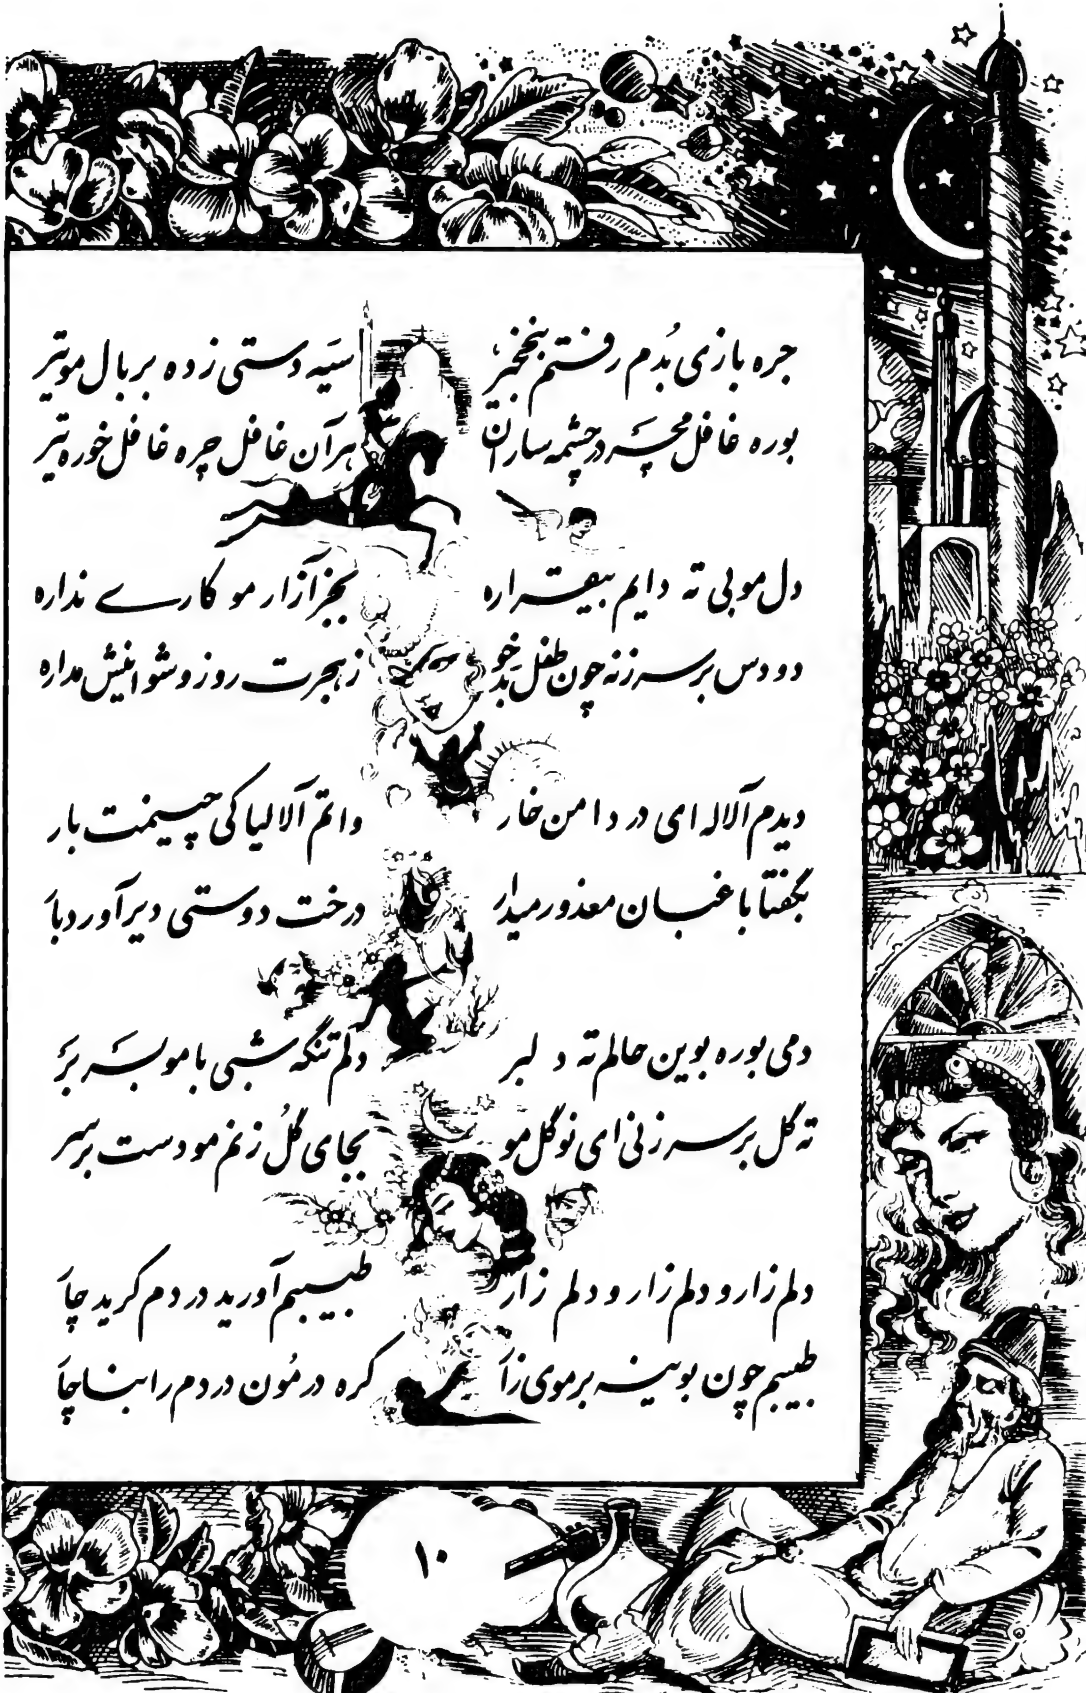 جره بازی بُدم رفتم بنخجیر سیَه دستی زده بر بال مو تیر
بوره غافل مچَه در چشمه ساران هر آن غافل چره غافل خوره تیر
دل مو بی ته دایم بیقراره بجز آزار مو کاری نداره
دو دس بر سر زنه چون طفل بَدخو ز هجرت روز و شو اینیش مداره
دیدم آلاله ای در دامن خار واتم آلالیا کی چینمت بار
بگفتا باغبان معذور میدار درخت دوستی دیر آورد بار
دمی بوره بوین حالم ته دلبر دلم تنگه شبی با مو بسَه بَر
ته گل بر سر زنی ای نو گل مو بجای گُل زنم مو دست بر سر
دلم زار و دلم زار و دلم زار طبیبم آورید دردم کرید چار
طبیبم چون بوینه بر موی زار کره درمون دردم را بناچار
۱۰